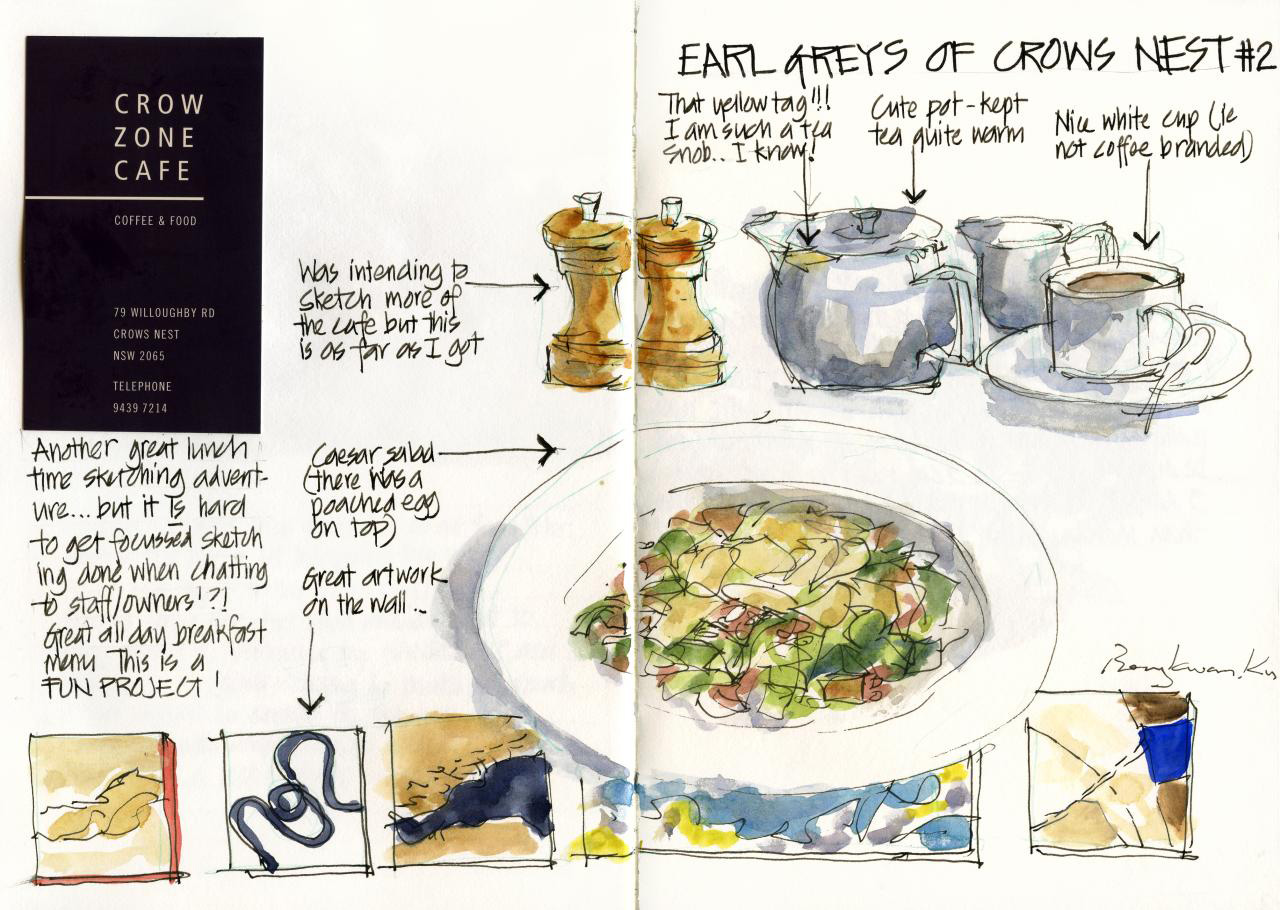 CROW
ZONE
CAFE
COFFEE & FOOD
79 WILLOUGHBY RD
CROWS NEST
NSW 2065
TELEPHONE
9439 7214
EARL GREYS OF CROWS NEST #2
That yellow tag!!!
I am such a tea
snob.. I know!
Cute pot-kept
tea quite warm
Nice white cup (ie
not coffee branded)
Was intending to
sketch more of
the cafe but this
is as far as I got
Caesar salad
(there was a
poached egg
on top)
Great artwork
on the wall...
Another great lunch
time sketching advent-
ure... but it Is hard
to get focussed sketch
ing done when chatting
to staff/owners'?!
Great all day breakfast
menu This is a
FUN PROJECT!